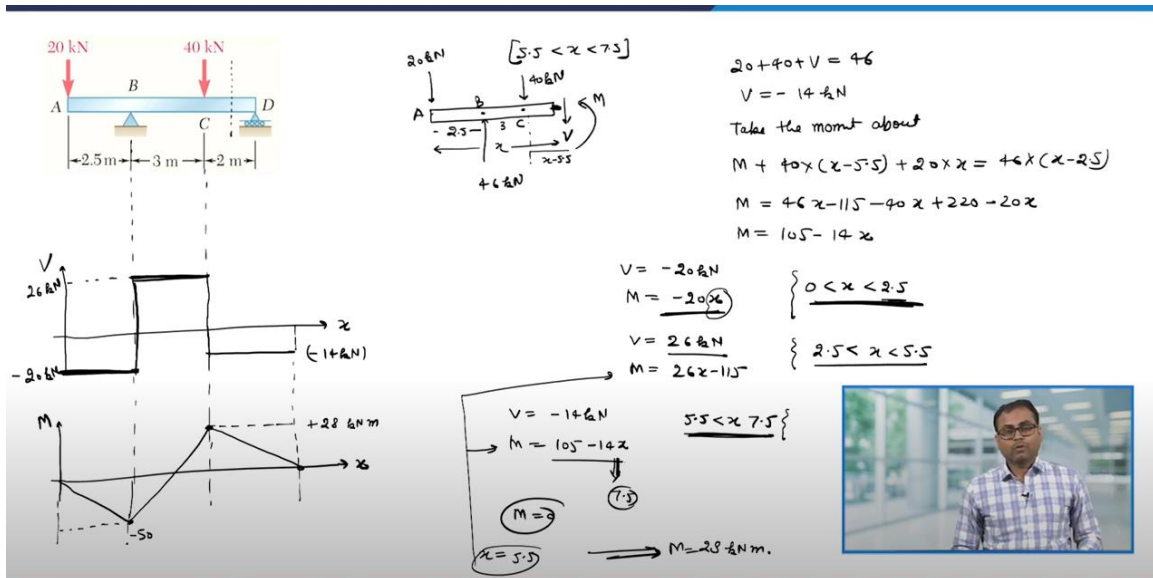 20 kN 40 kN
B
A D
C
2.5 m 3 m 2 m
V
26 kN
x
(-14 kN)
-20 kN
M
+28 kNm
x
-50
[5.5 < x < 7.5]
20kN
40kN
M
A B C
- 2.5 - 3
V
x
x-5.5
46 kN
20+40+V = 46
V = - 14 kN
Take the momt about
M + 40×(x-5.5) + 20×x = 46×(x-2.5)
M = 46x-115-40x+220-20x
M = 105-14x
V = -20kN
M = -20x
{ 0 < x < 2.5
V = 26kN
M = 26x-115
{ 2.5 < x < 5.5
V = -14kN
M = 105-14x
5.5 < x 7.5 {
7.5
M=0
x = 5.5
M=28 kNm.